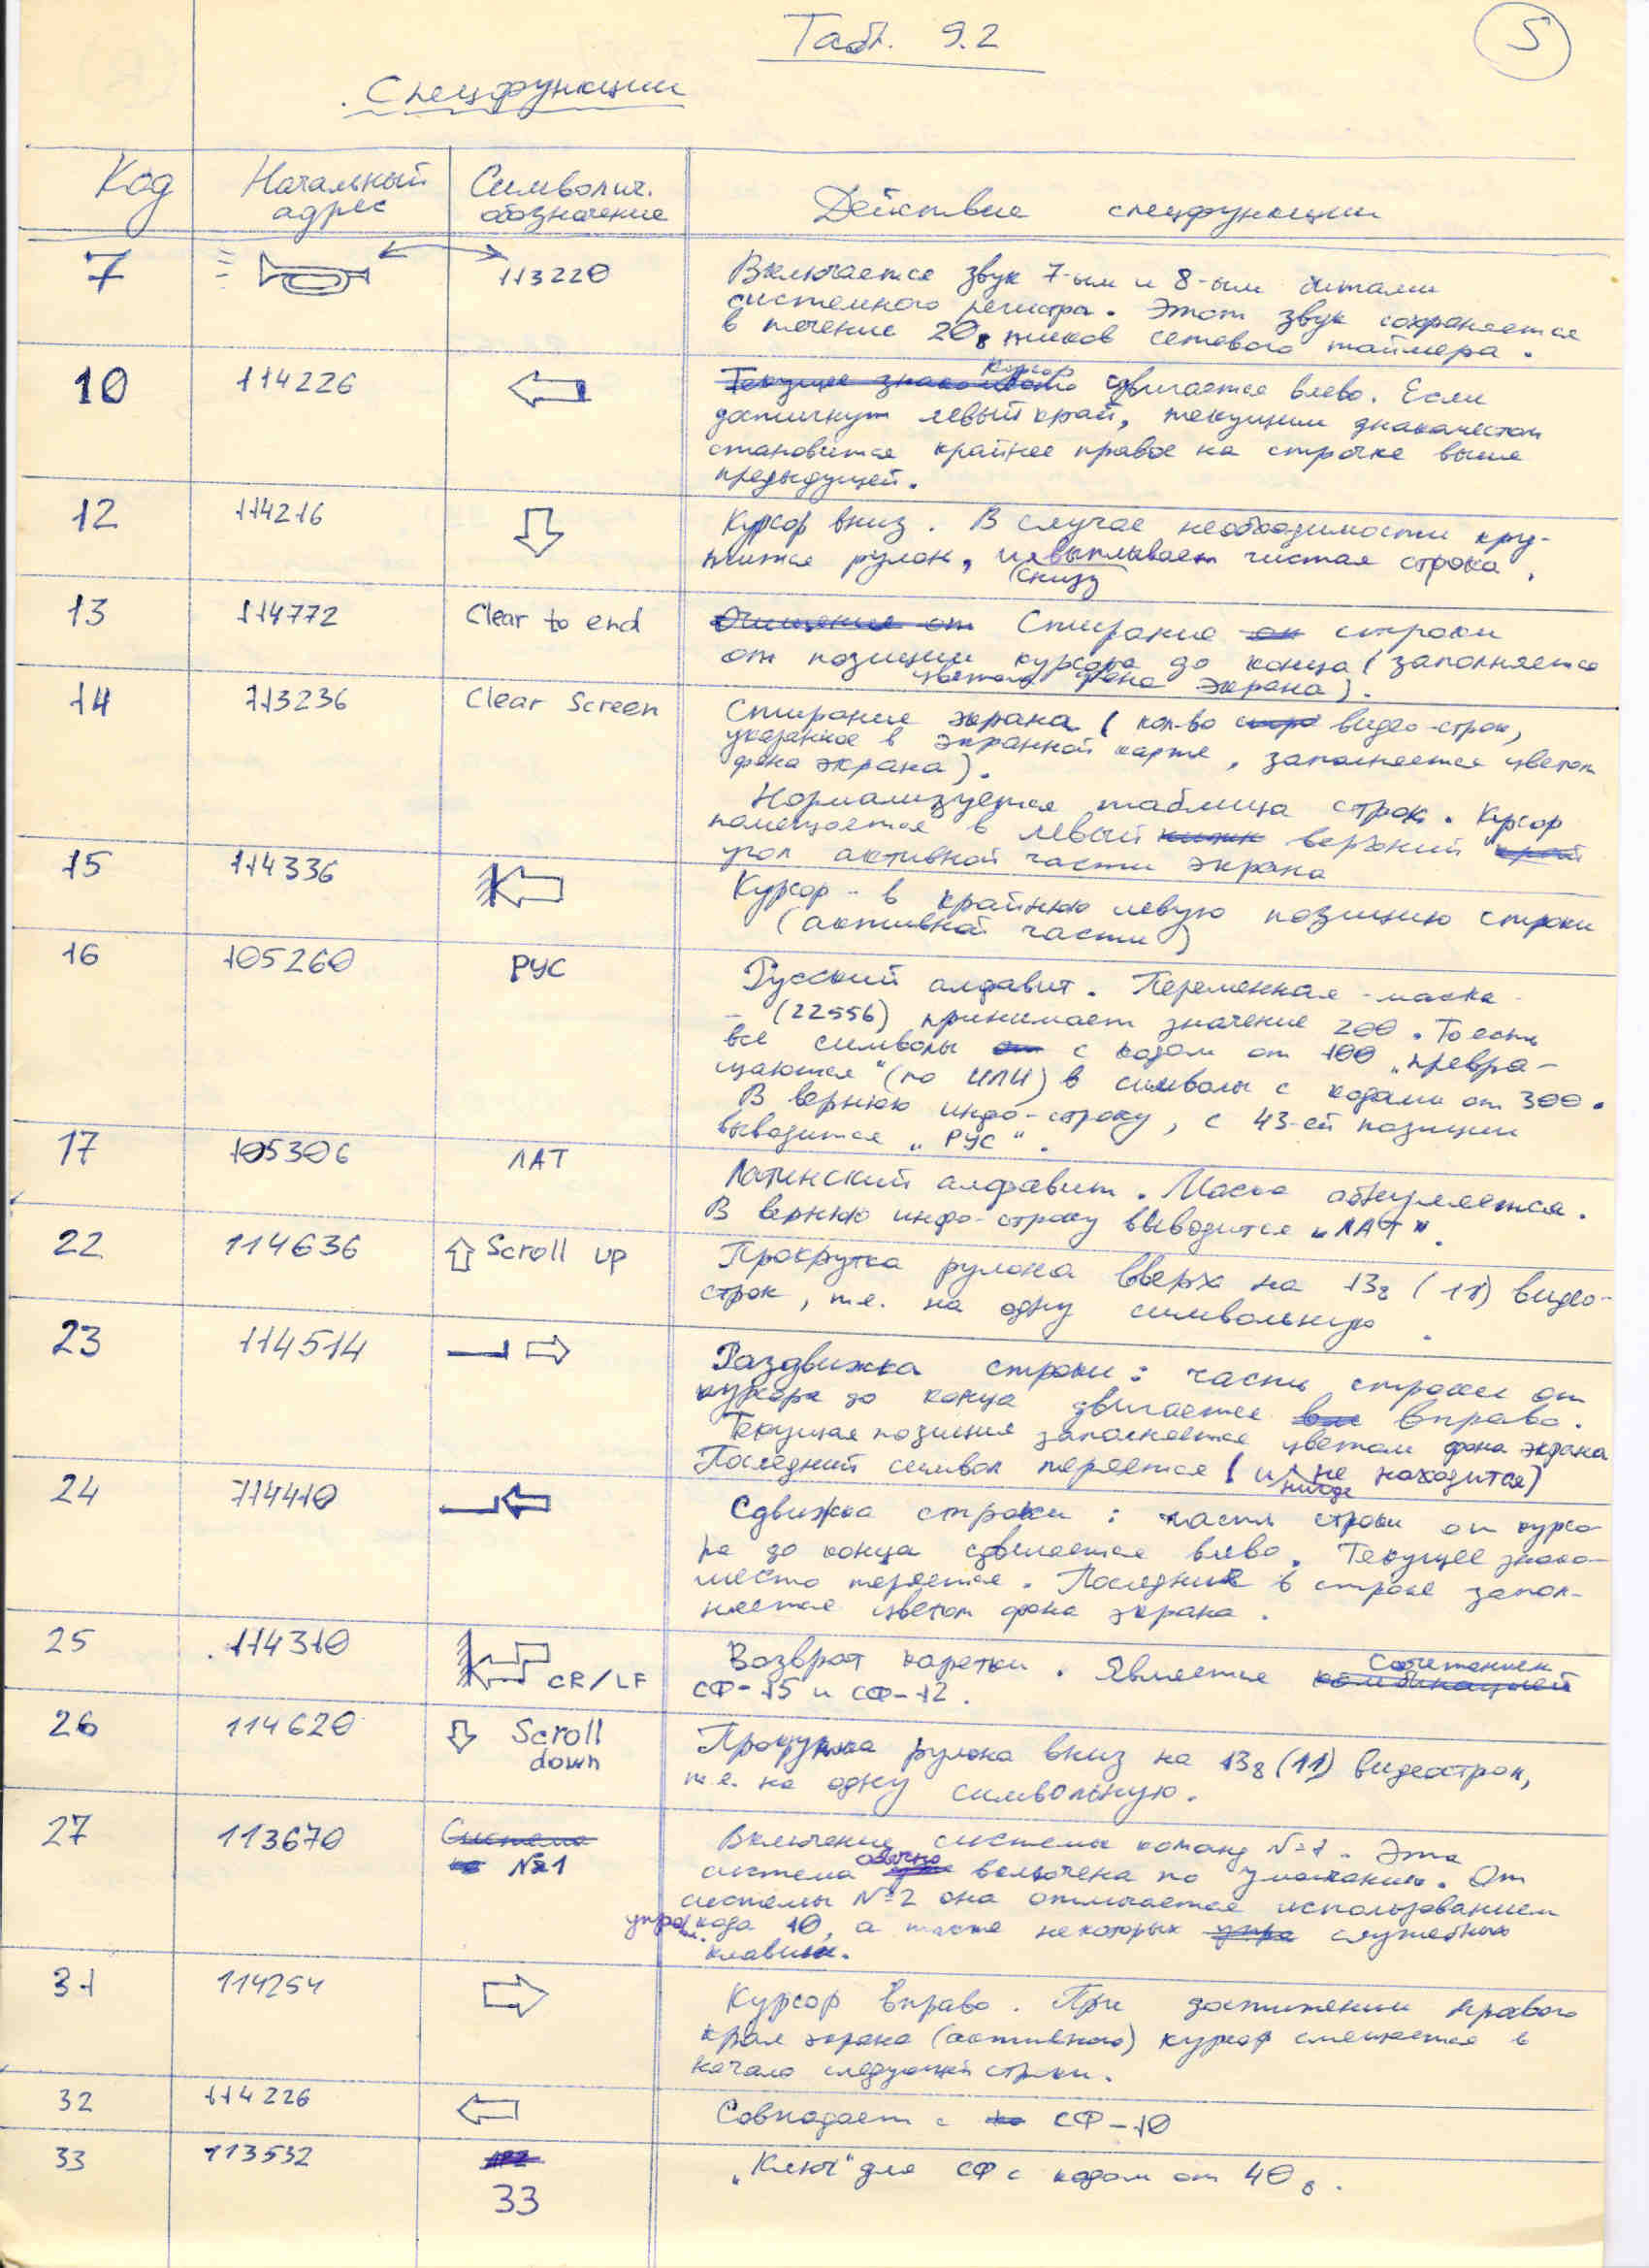 Табл. 9.2
5
Спецфункции
Код
Начальный адрес
Символич. обозначение
Действие спецфункции
7
113220
Включается звук 7-ым и 8-ым битами
системного регистра. Этот звук сохраняется
в течение 20₈ тиков сетевого таймера.
10
114226
Текущее знакоместо
Курсор
сдвигается влево. Если
достигнут левый край, текущим знакоместом
становится крайнее правое на строчке выше
предыдущей.
12
114216
Курсор вниз. В случае необходимости кру-
тится рулон, и выплывает чистая строка.
(снизу
13
114772
Clear to end
Очищение от Стирание строки
от позиции курсора до конца (заполняется
цветом фона экрана).
14
113236
Clear Screen
Стирание экрана (кол-во видео-строк,
указанное в экранной карте, заполняется цветом
фона экрана).
Нормализуется таблица строк. Курсор
помещается в левый верхний край
угол активной части экрана
15
114336
Курсор - в крайнюю левую позицию строки
(активной части)
16
105260
РУС
Русский алфавит. Переменная - маска -
- (22556) принимает значение 200. То есть
все символы с кодом от 100 „превра-
щаются" (по ИЛИ) в символы с кодами от 300.
В верхнюю инфо-строку, с 43-ей позиции
выводится „РУС".
17
105306
ЛАТ
Латинский алфавит. Маска обнуляется.
В верхнюю инфо-строку выводится „ЛАТ".
22
114636
Scroll up
Прокрутка рулона вверх на 13₈ (11) видео-
строк, т.е. на одну символьную.
23
114514
Раздвижка строки: часть строки от
курсора до конца двигается вле вправо.
Текущая позиция заполняется цветом фона экрана
Последний символ теряется (и не находится)
нигде
24
114410
Сдвижка строки: часть строки от курсо-
ра до конца сдвигается влево. Текущее знако-
место теряется. Последнее в строке запол-
няется цветом фона экрана.
25
114310
CR/LF
сочетанием
Возврат каретки. Является комбинацией
СФ-15 и СФ-12.
26
114620
Scroll
down
Прокрутка рулона вниз на 13₈ (11) видеострок,
т.е. на одну символьную.
27
113670
Система
№1
Включение системы команд №1. Эта
система обычно включена по умолчанию. От
системы №2 она отличается использованием
кода 10, а также некоторых упра служебных
клавиш.
31
114254
Курсор вправо. При достижении правого
края экрана (активного) курсор смещается в
начало следующей строки.
32
114226
Совпадает с СФ-10
33
113532
33
„Ключ" для СФ с кодом от 40₈.